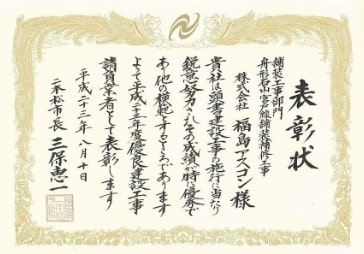 表彰状
舗装工事部門
舟形石山宮戸線舗装補修工事
株式会社 福島アスコン 様
貴社は頭書建設工事の施行に当たり
鋭意努力されその成績が特に優秀で
あり他の模範とするところであります
よって平成二十三年度優良建設工事
請負業者として表彰します
平成二十三年八月十日
二本松市長 三保恵一